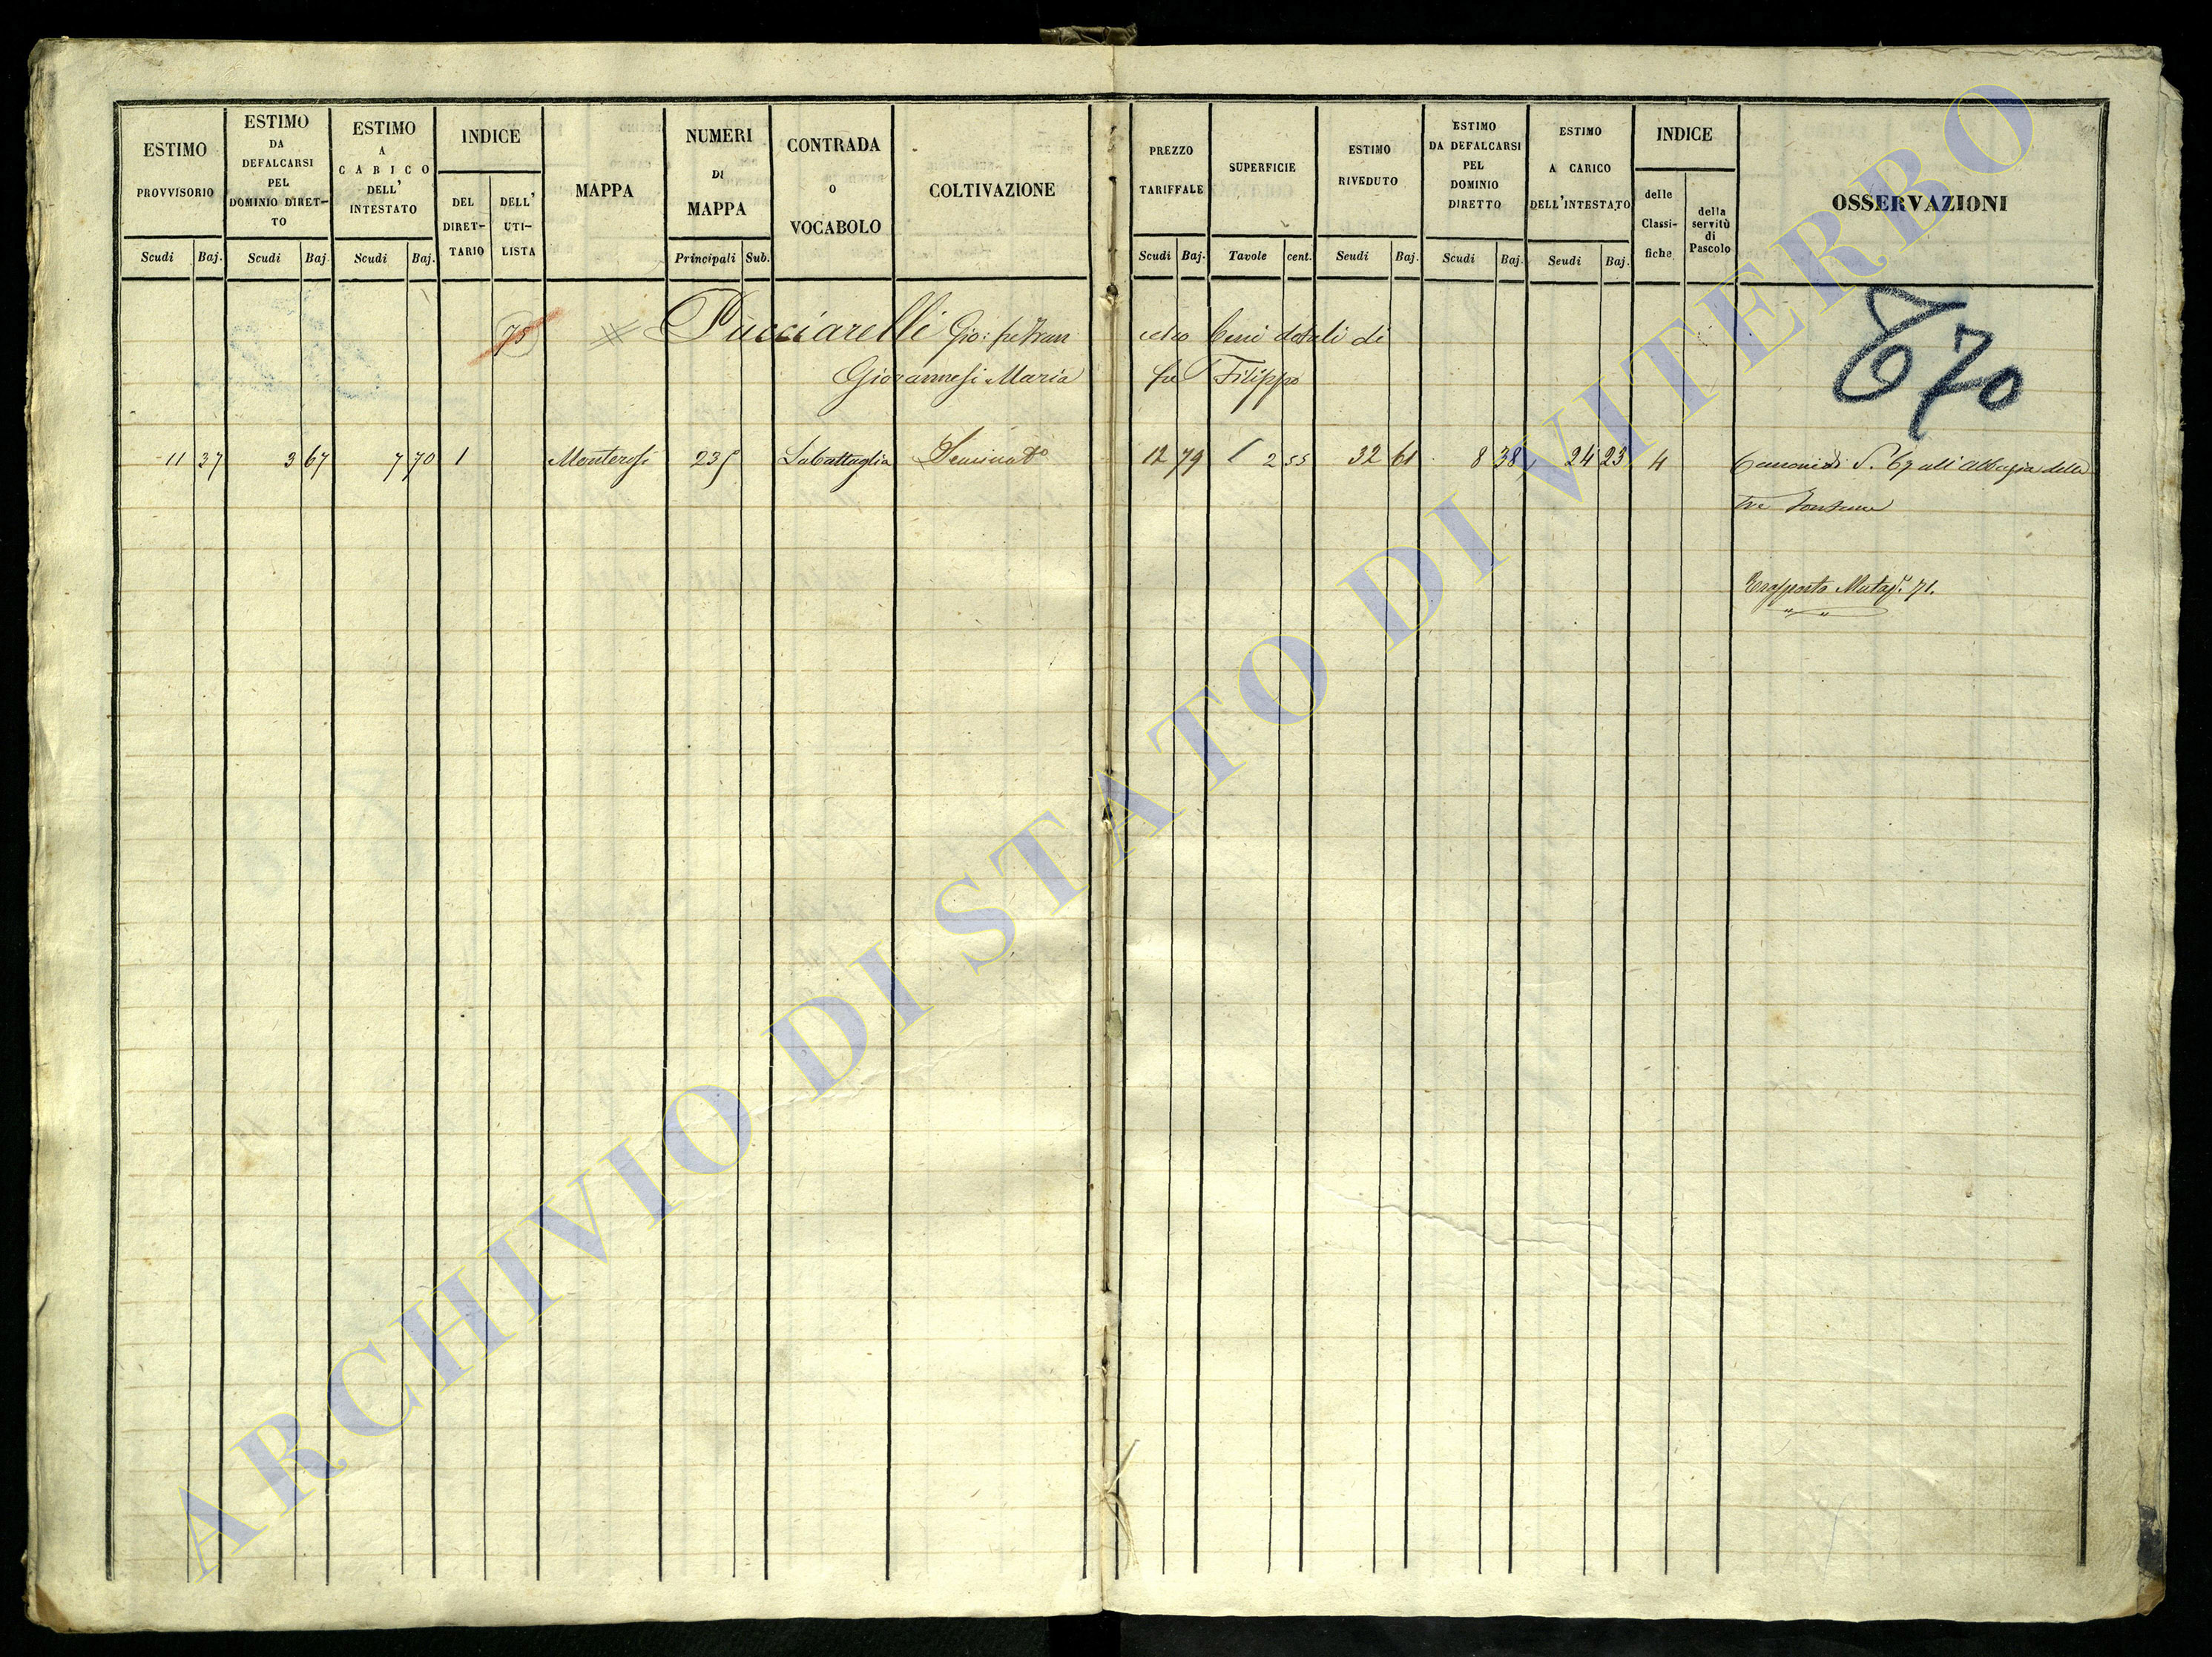 ESTIMO PROVVISORIO
Scudi Baj.
ESTIMO DA DEFALCARSI PEL DOMINIO DIRET-TO
Scudi Baj
ESTIMO A CARICO DELL' INTESTATO
Scudi Baj.
INDICE
DEL DIRET-TARIO
DELL' UTI-LISTA
MAPPA
NUMERI DI MAPPA
Principali Sub.
CONTRADA O VOCABOLO
COLTIVAZIONE
PREZZO TARIFFALE
Scudi Baj.
SUPERFICIE
Tavole cent.
ESTIMO RIVEDUTO
Scudi Baj.
ESTIMO DA DEFALCARSI PEL DOMINIO DIRETTO
Scudi Baj.
ESTIMO A CARICO DELL'INTESTATO
Scudi Baj.
INDICE
delle Classi-fiche
della servitù di Pascolo
OSSERVAZIONI
670
75 Pucciarelli Gio: fu Fran cesco beni dotali di
Giovannesi Maria fu Filippo
11 37 3 67 7 70 1 Monterosi 235 Labattaglia Seminato 12 79 2 55 32 61 8 38 24 23 4 Canone di S. 67 all Abbazia delle
tre Fontane
Trasporto Mutaz. 71.
ARCHIVIO DI STATO DI VITERBO